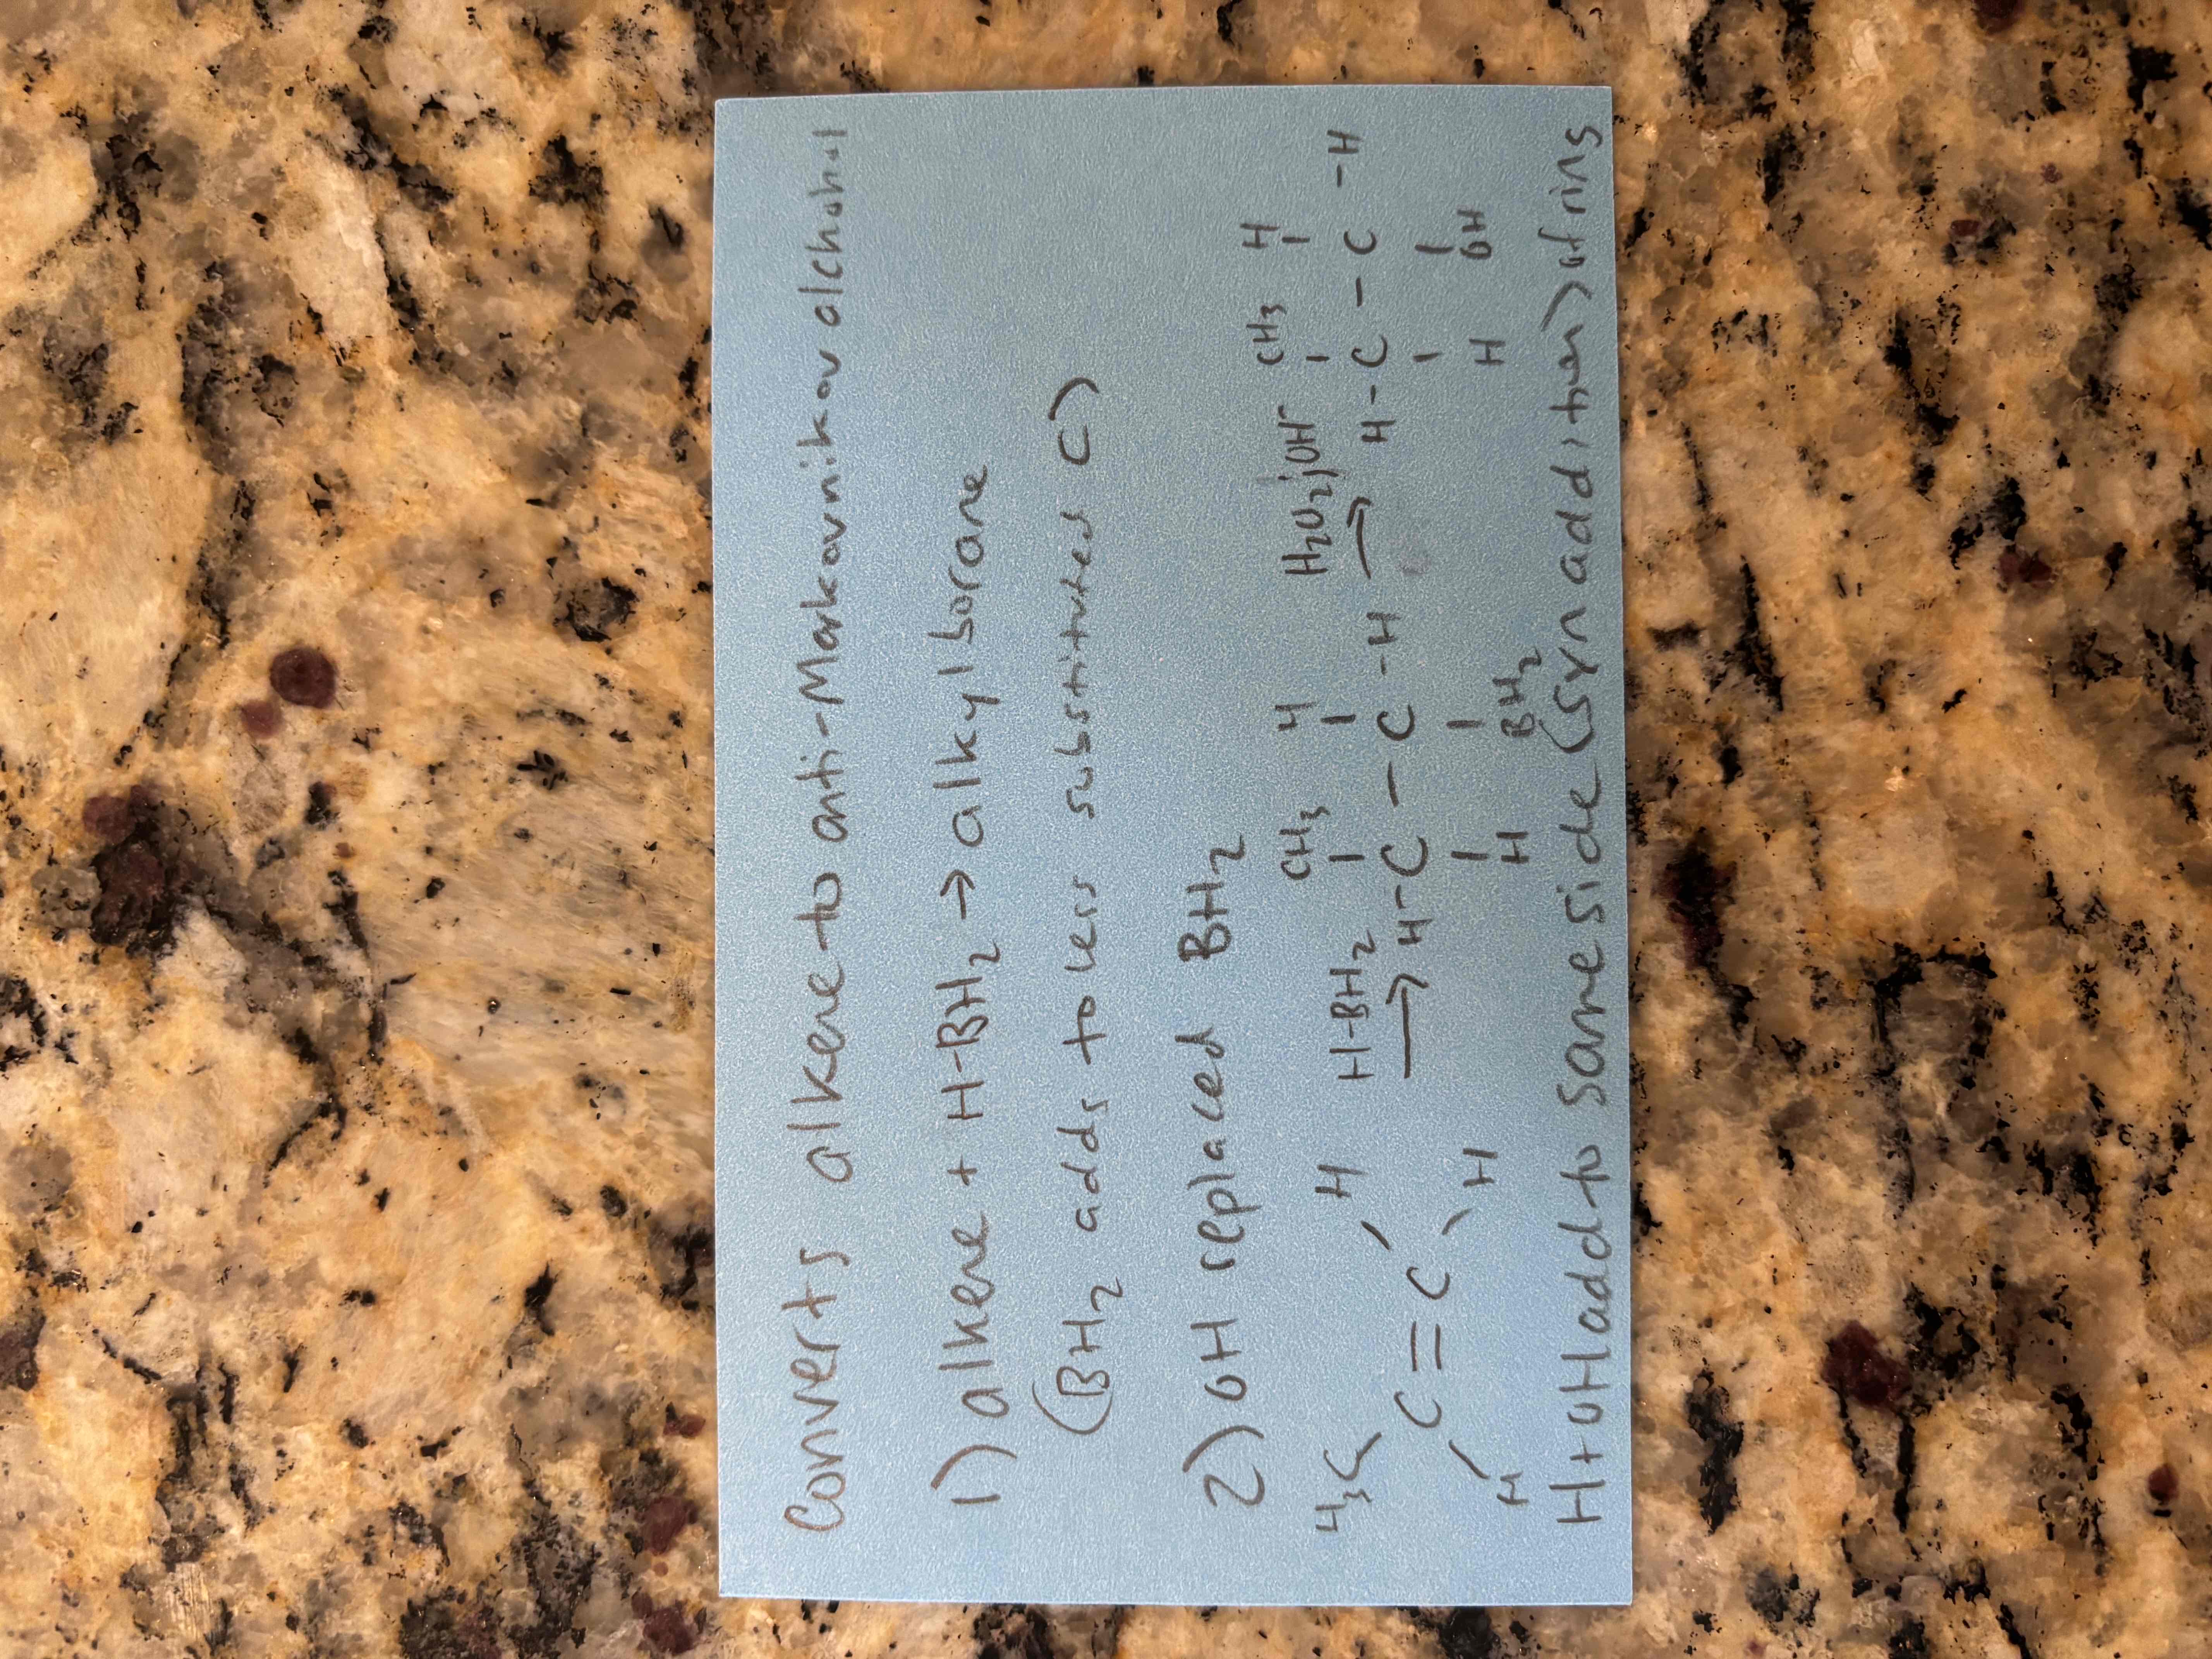 Converts alkene to anti-Markovnikov alchohol
1) alkene + H-BH₂ → alkylborane
(BH₂ adds to less substituted C)
2) OH replaced BH₂
CH₃ H CH₃ H
H₃C H H-BH₂ | | H₂O₂, OH⁻ | |
C=C → H-C-C-H → H-C-C-H
H H | | | |
H BH₂ H OH
H+OH add to same side (syn addition) of ring